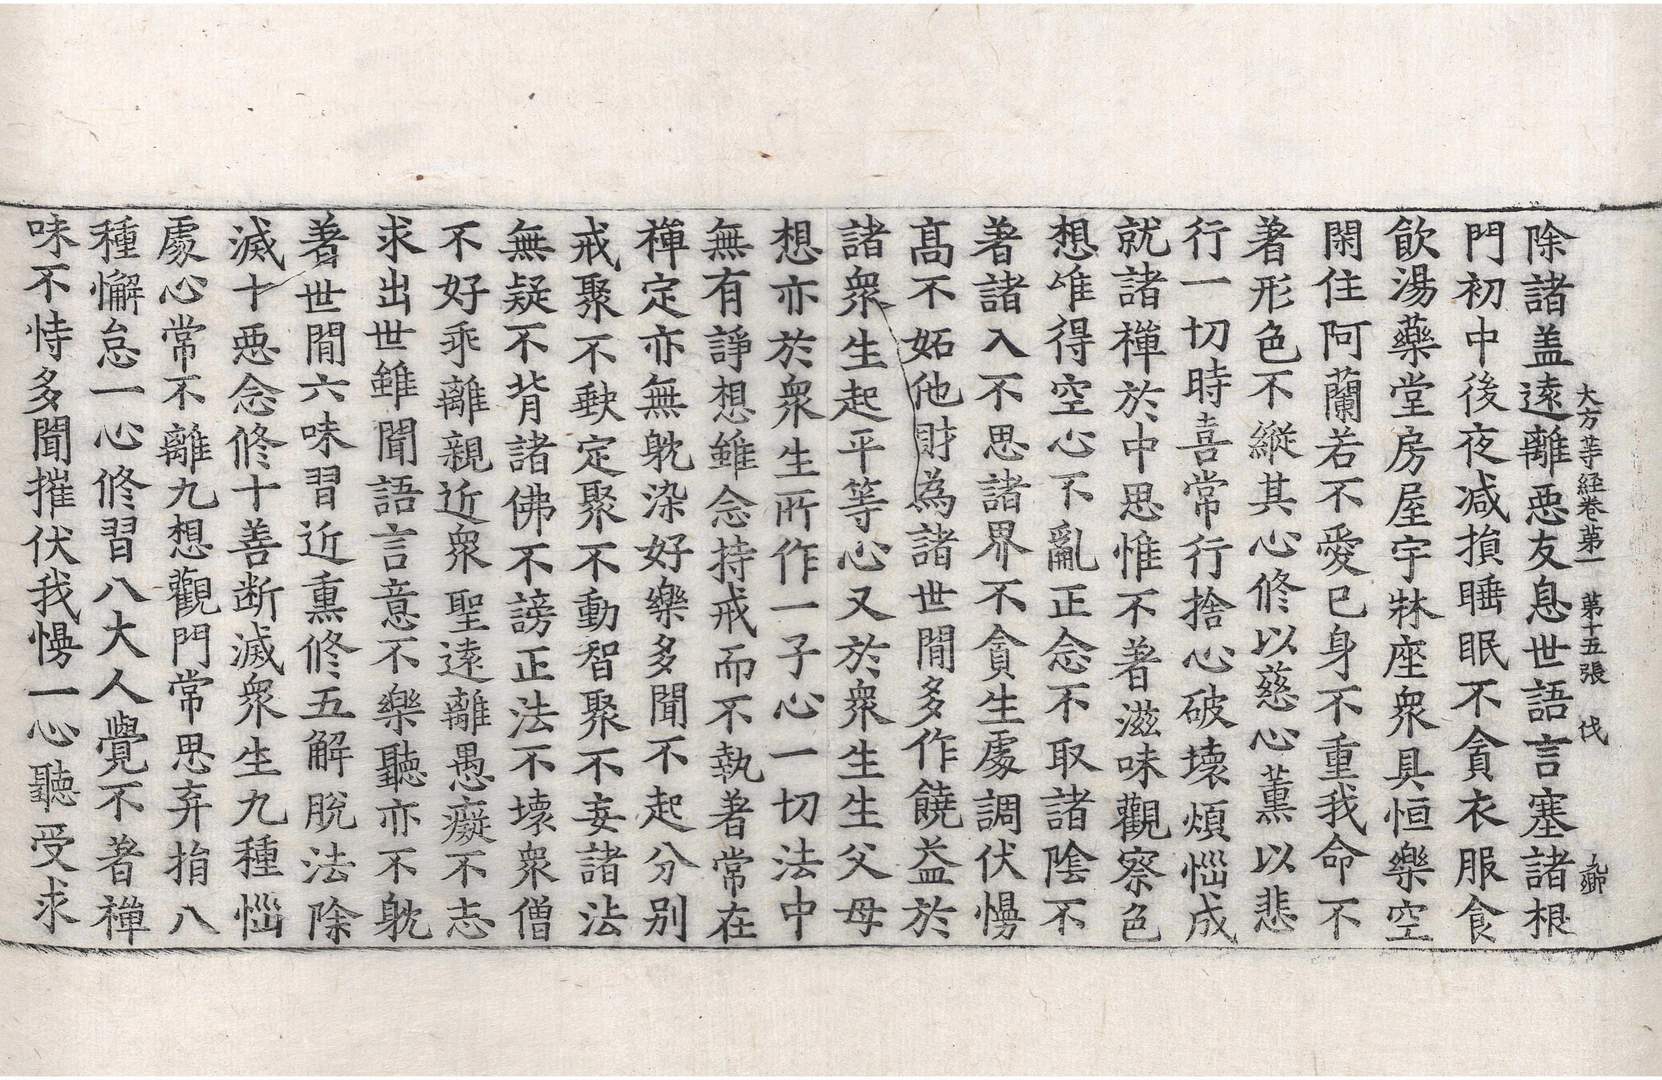 大方等経卷第一 第十五張 伐
除諸盖遠離惡友息世語言塞諸根
門初中後夜减損睡眠不貪衣服食
飲湯藥堂房屋宇牀座衆具恒樂空
閑住阿蘭若不愛已身不重我命不
著形色不縱其心修以慈心薰以悲
行一切時喜常行捨心破壞煩惱成
就諸禪於中思惟不著滋味觀察色
想唯得空心不亂正念不取諸陰不
著諸入不思諸界不貪生處調伏慢
髙不妬他財為諸世間多作饒益於
諸衆生起平等心又於衆生生父母
想亦於衆生所作一子心一切法中
無有諍想雖念持戒而不執著常在
禪定亦無躭染好樂多聞不起分別
戒聚不缺定聚不動智聚不妄諸法
無疑不背諸佛不謗正法不壞衆僧
不好乖離親近衆聖遠離愚癡不志
求出世雖聞語言意不樂聽亦不躭
著世間六味習近熏修五解脫法除
滅十惡念修十善断滅衆生九種惱
處心常不離九想觀門常思弃捐八
種懈怠一心修習八大人覺不著禪
味不恃多聞摧伏我慢一心聽受求